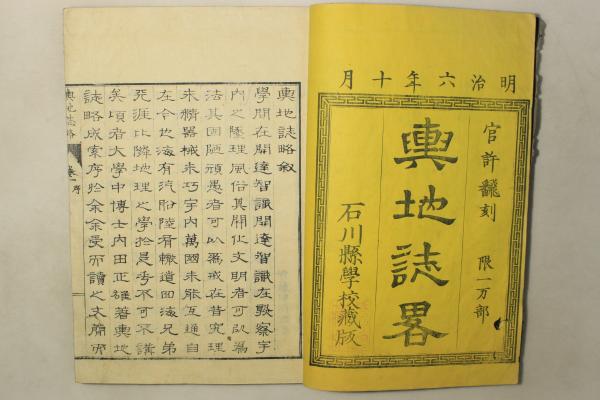 明治六年十月
官許翻刻 限一万部
輿地誌畧
石川縣學校蔵版
輿地誌略敘
學問在開達智識開達智識在默察宇
内之隆理風俗其開化文明者可以為
法其固陋頑愚者可以為戒在昔究理
未精器械未巧宇内萬國未能互通自
在今也海有汽船陸有轍道四海兄弟
死涯比隣地理之學於是乎不可不講
矣頃者大學中博士内田正雄著輿地
誌略成案序於余余受而讀之文簡而
輿地誌略 巻一 序